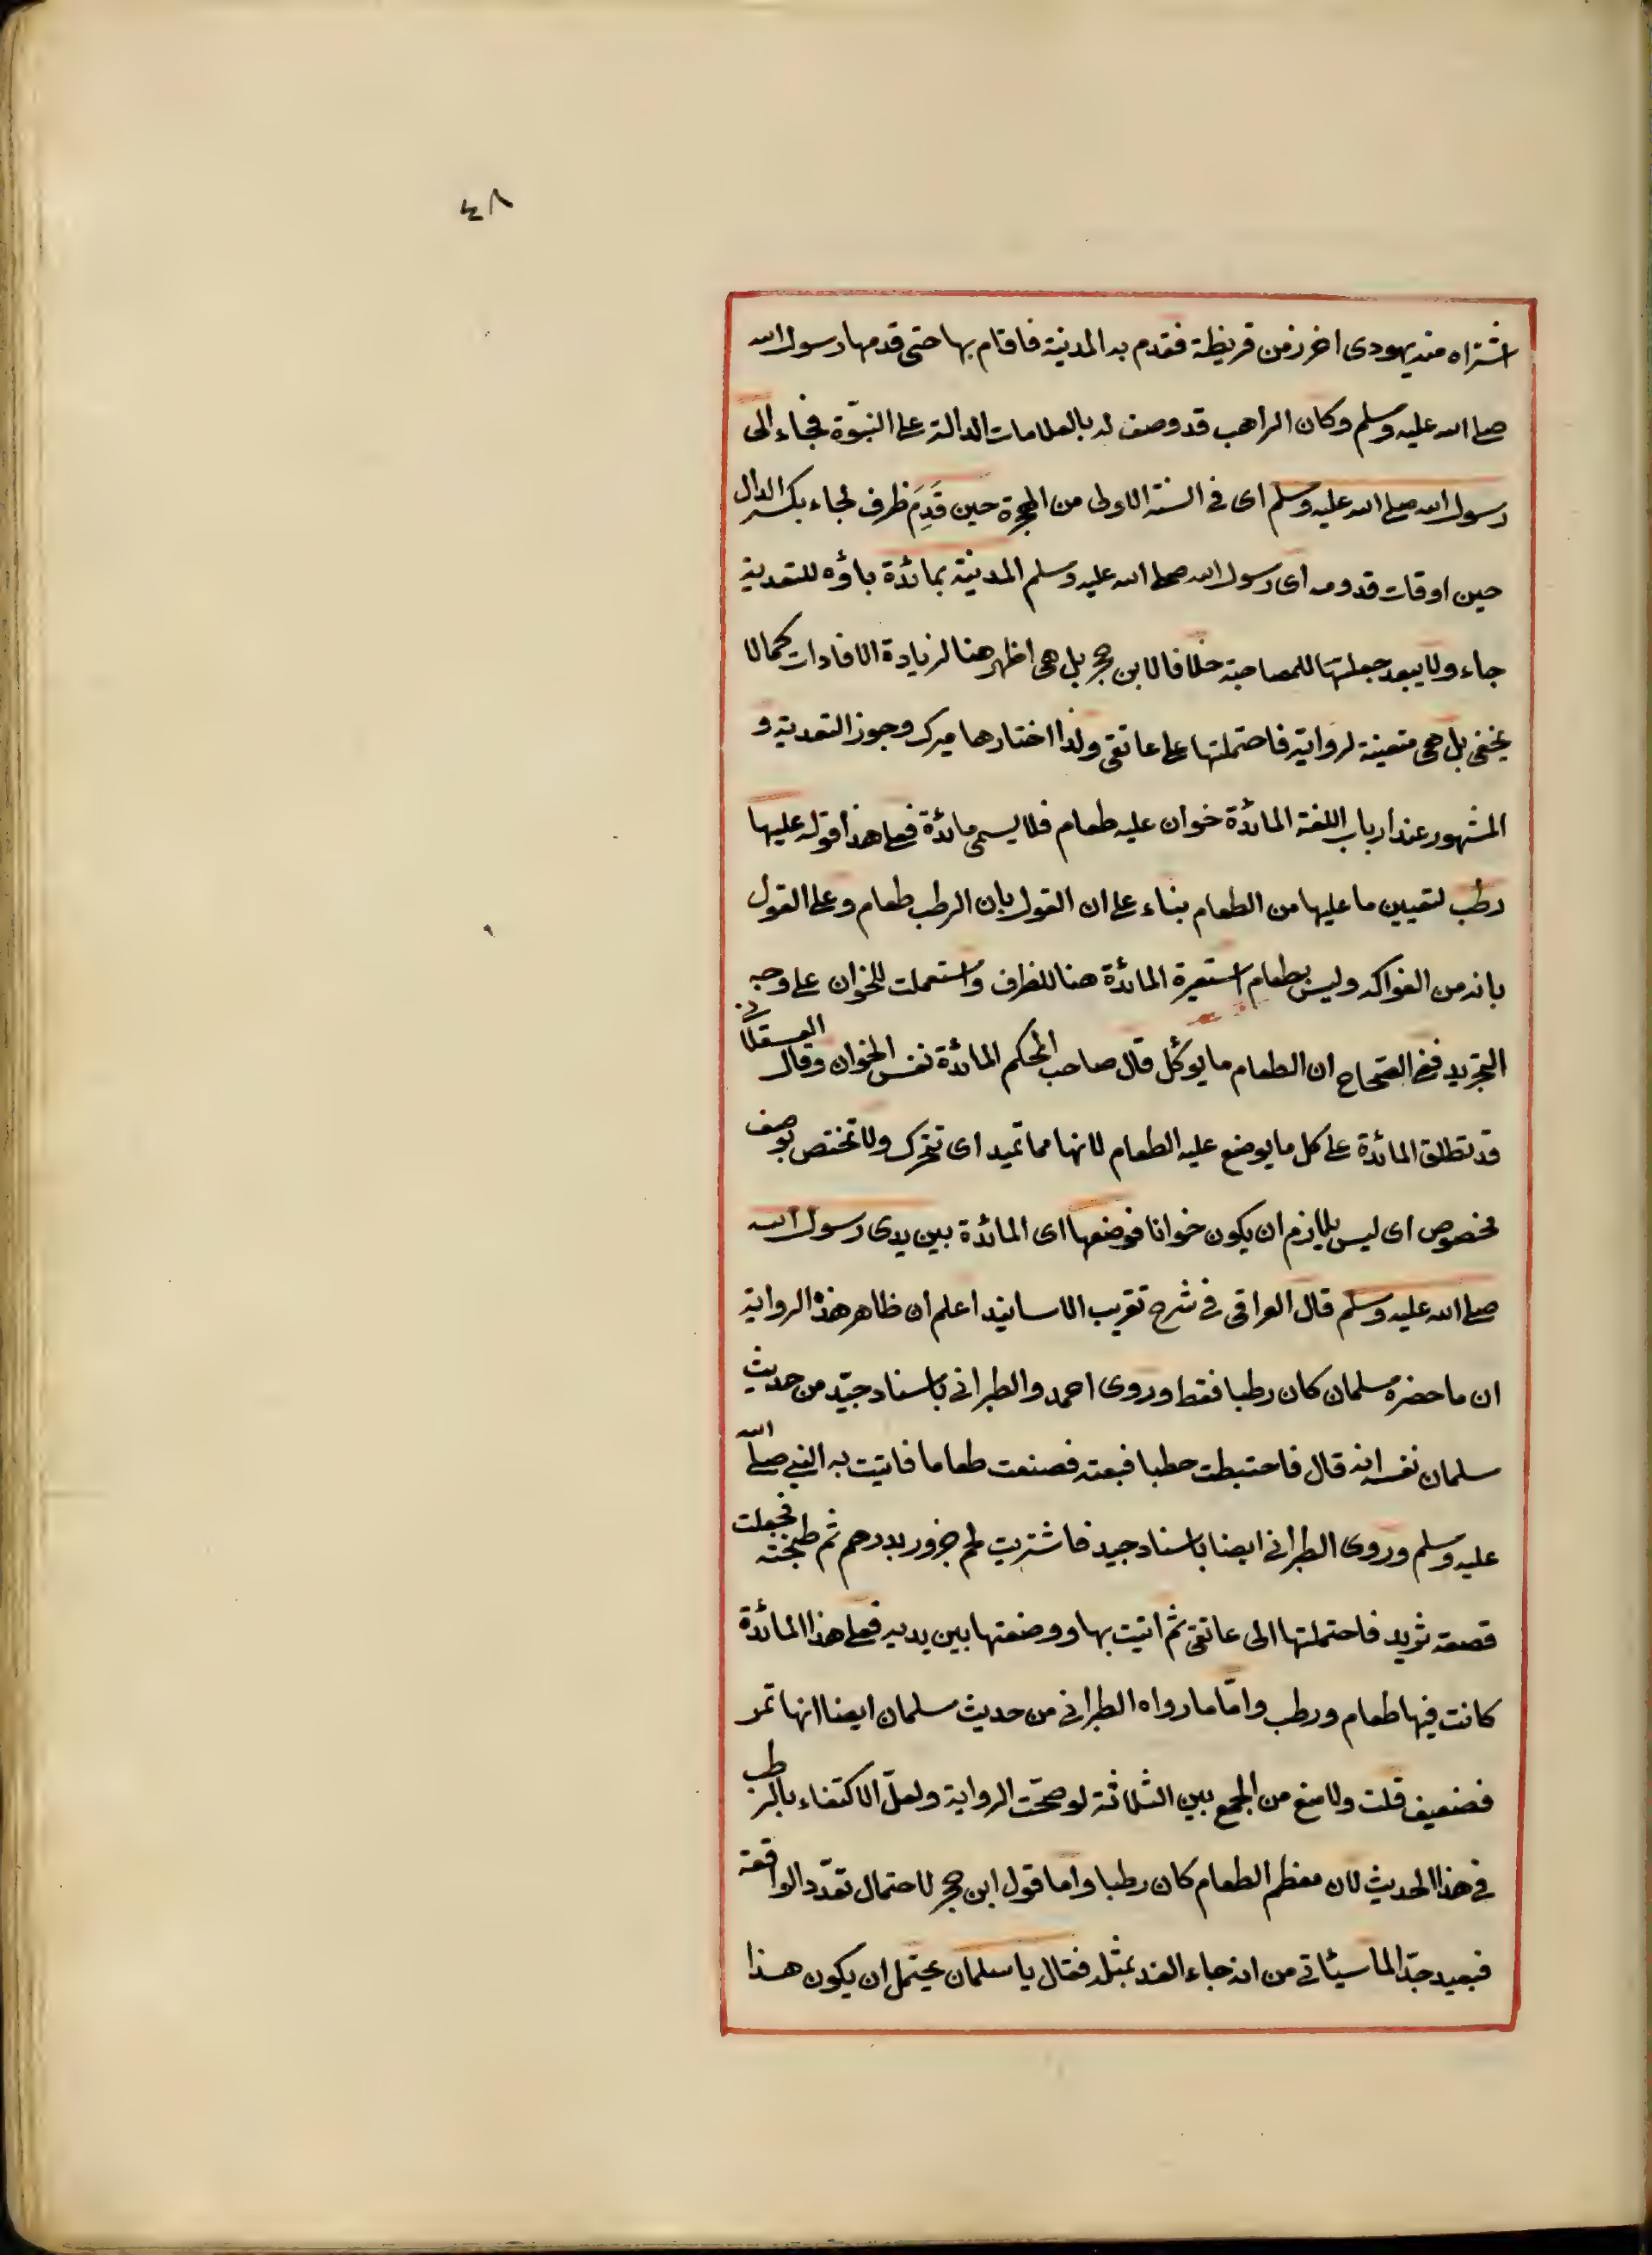 ٤٨
اشتراه منه يهودى اخر من قريظة فقدم به المدينة فاقام بها حتى قدمها رسول الله
صلى الله عليه وسلم وكان الراهب قد وصف له بالعلامات الدالة على النبوّة فجاء الى
رسول الله صلى الله عليه وسلم اى فى السنة الاولى من الهجرة حين قَدِمَ ظرف لجاء بكسر الدال
حين اوقات قدومه اى رسول الله صلى الله عليه وسلم المدينة بمائدة باؤه للتعدية
جاء ولا يبعد جعلتها للمصاحبة خلافا لابن حجر بل هى اظهر هنا لزيادة الافادات كما لا
يخفى بل هى متعينة لرواية فاحتملتها على عاتقى ولذا اختارها ميرك وجوز التعدية و
المشهور عند ارباب اللغة المائدة خوان عليه طعام فلا يسمى مائدة فعلى هذا قوله عليها
رطب لتعيين ما عليها من الطعام بناء على ان القول بان الرطب طعام وعلى القول
بانه من الفواكه وليس بطعام استعيرة المائدة هنا للظرف واستعملت للخوان على وجه
التجريد ففى الصحاح ان الطعام ما يوكل قال صاحب المحكم المائدة نفس الخوان وقال العسقلانى
قد تطلق المائدة على كل ما يوضع عليه الطعام لانها مما تميد اى تتحرك ولا تختص بوصف
مخصوص اى ليس بلازم ان يكون خوانا فوضعها اى المائدة بين يدى رسول الله
صلى الله عليه وسلم قال العراقى فى شرح تقريب الاسانيد اعلم ان ظاهر هذه الرواية
ان ما حضره سلمان كان رطبا فقط وروى احمد والطبرانى باسناد جيّد من حديث
سلمان نفسه انه قال فاحتبطت حطبا فبعته فصنعت طعاما فاتيت به النبى صلى الله
عليه وسلم وروى الطبرانى ايضا باسناد جيد فاشتريت لحم جزور بدرهم ثم طبخته فجعلت
قصعة ثريد فاحتملتها الى عاتقى ثم اتيت بها ووضعتها بين يديه فعلى هذا المائدة
كانت فيها طعام ورطب وامّا ما رواه الطبرانى من حديث سلمان ايضا انها تمر
فضعيف قلت ولا منع من الجمع بين الثلاثة لو صحّت الرواية ولعلّ الاكتفاء بالرطب
فى هذا الحديث لان معظم الطعام كان رطبا واما قول ابن حجر لاحتمال تعدّد الواقعة
فبعيد جدّا لما سيئاتى من انه جاء الغد بمثله فقال يا سلمان يحتمل ان يكون هذا